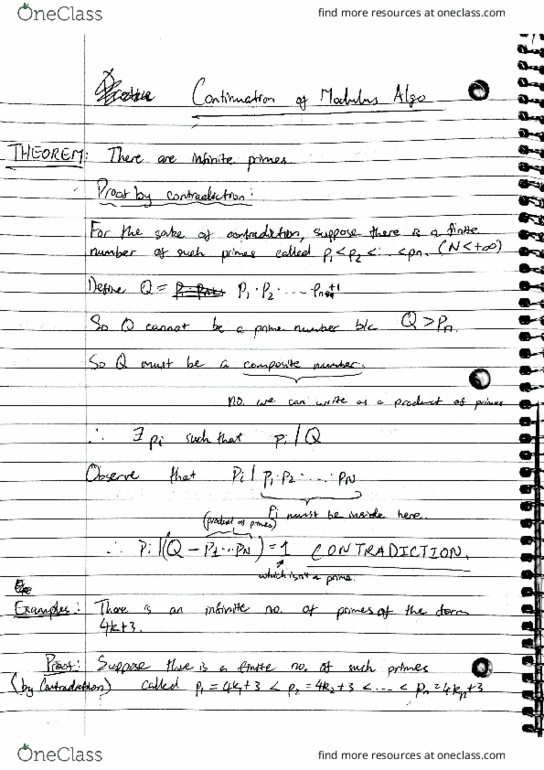 OneClass find more resources at oneclass.com
Continuation of Modulus Algo
THEOREM: There are infinite primes.
Proof by contradiction:
For the sake of contradiction, suppose there is a finite
number of such primes called p₁<p₂<...<pn. (N<+∞)
Define Q = p₁·p₂·.....pₙ+1
So Q cannot be a prime number b/c Q>Pn.
So Q must be a composite number.
no. we can write as a product of primes
∴ ∃pi such that pi|Q
Observe that Pi|p₁·p₂.....pN
Pi must be inside here.
(product of primes)
∴ Pi|(Q-P1...PN)=1 CONTRADICTION.
which isn't a prime.
Examples: There is an infinite no. of primes of the form
4k+3.
Proof: Suppose there is a finite no. of such primes
(by Contradiction) called p₁=4k₁+3 < p₂=4k₂+3 <....< pn=4kn+3
OneClass find more resources at oneclass.com